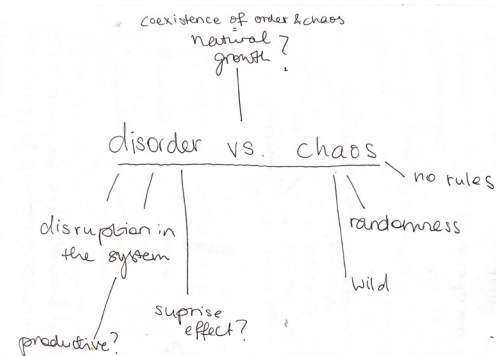 coexistence of order & chaos
natural
growth?
disorder vs. chaos
no rules
disruption in
the system
randomness
wild
suprise
effect?
productive?